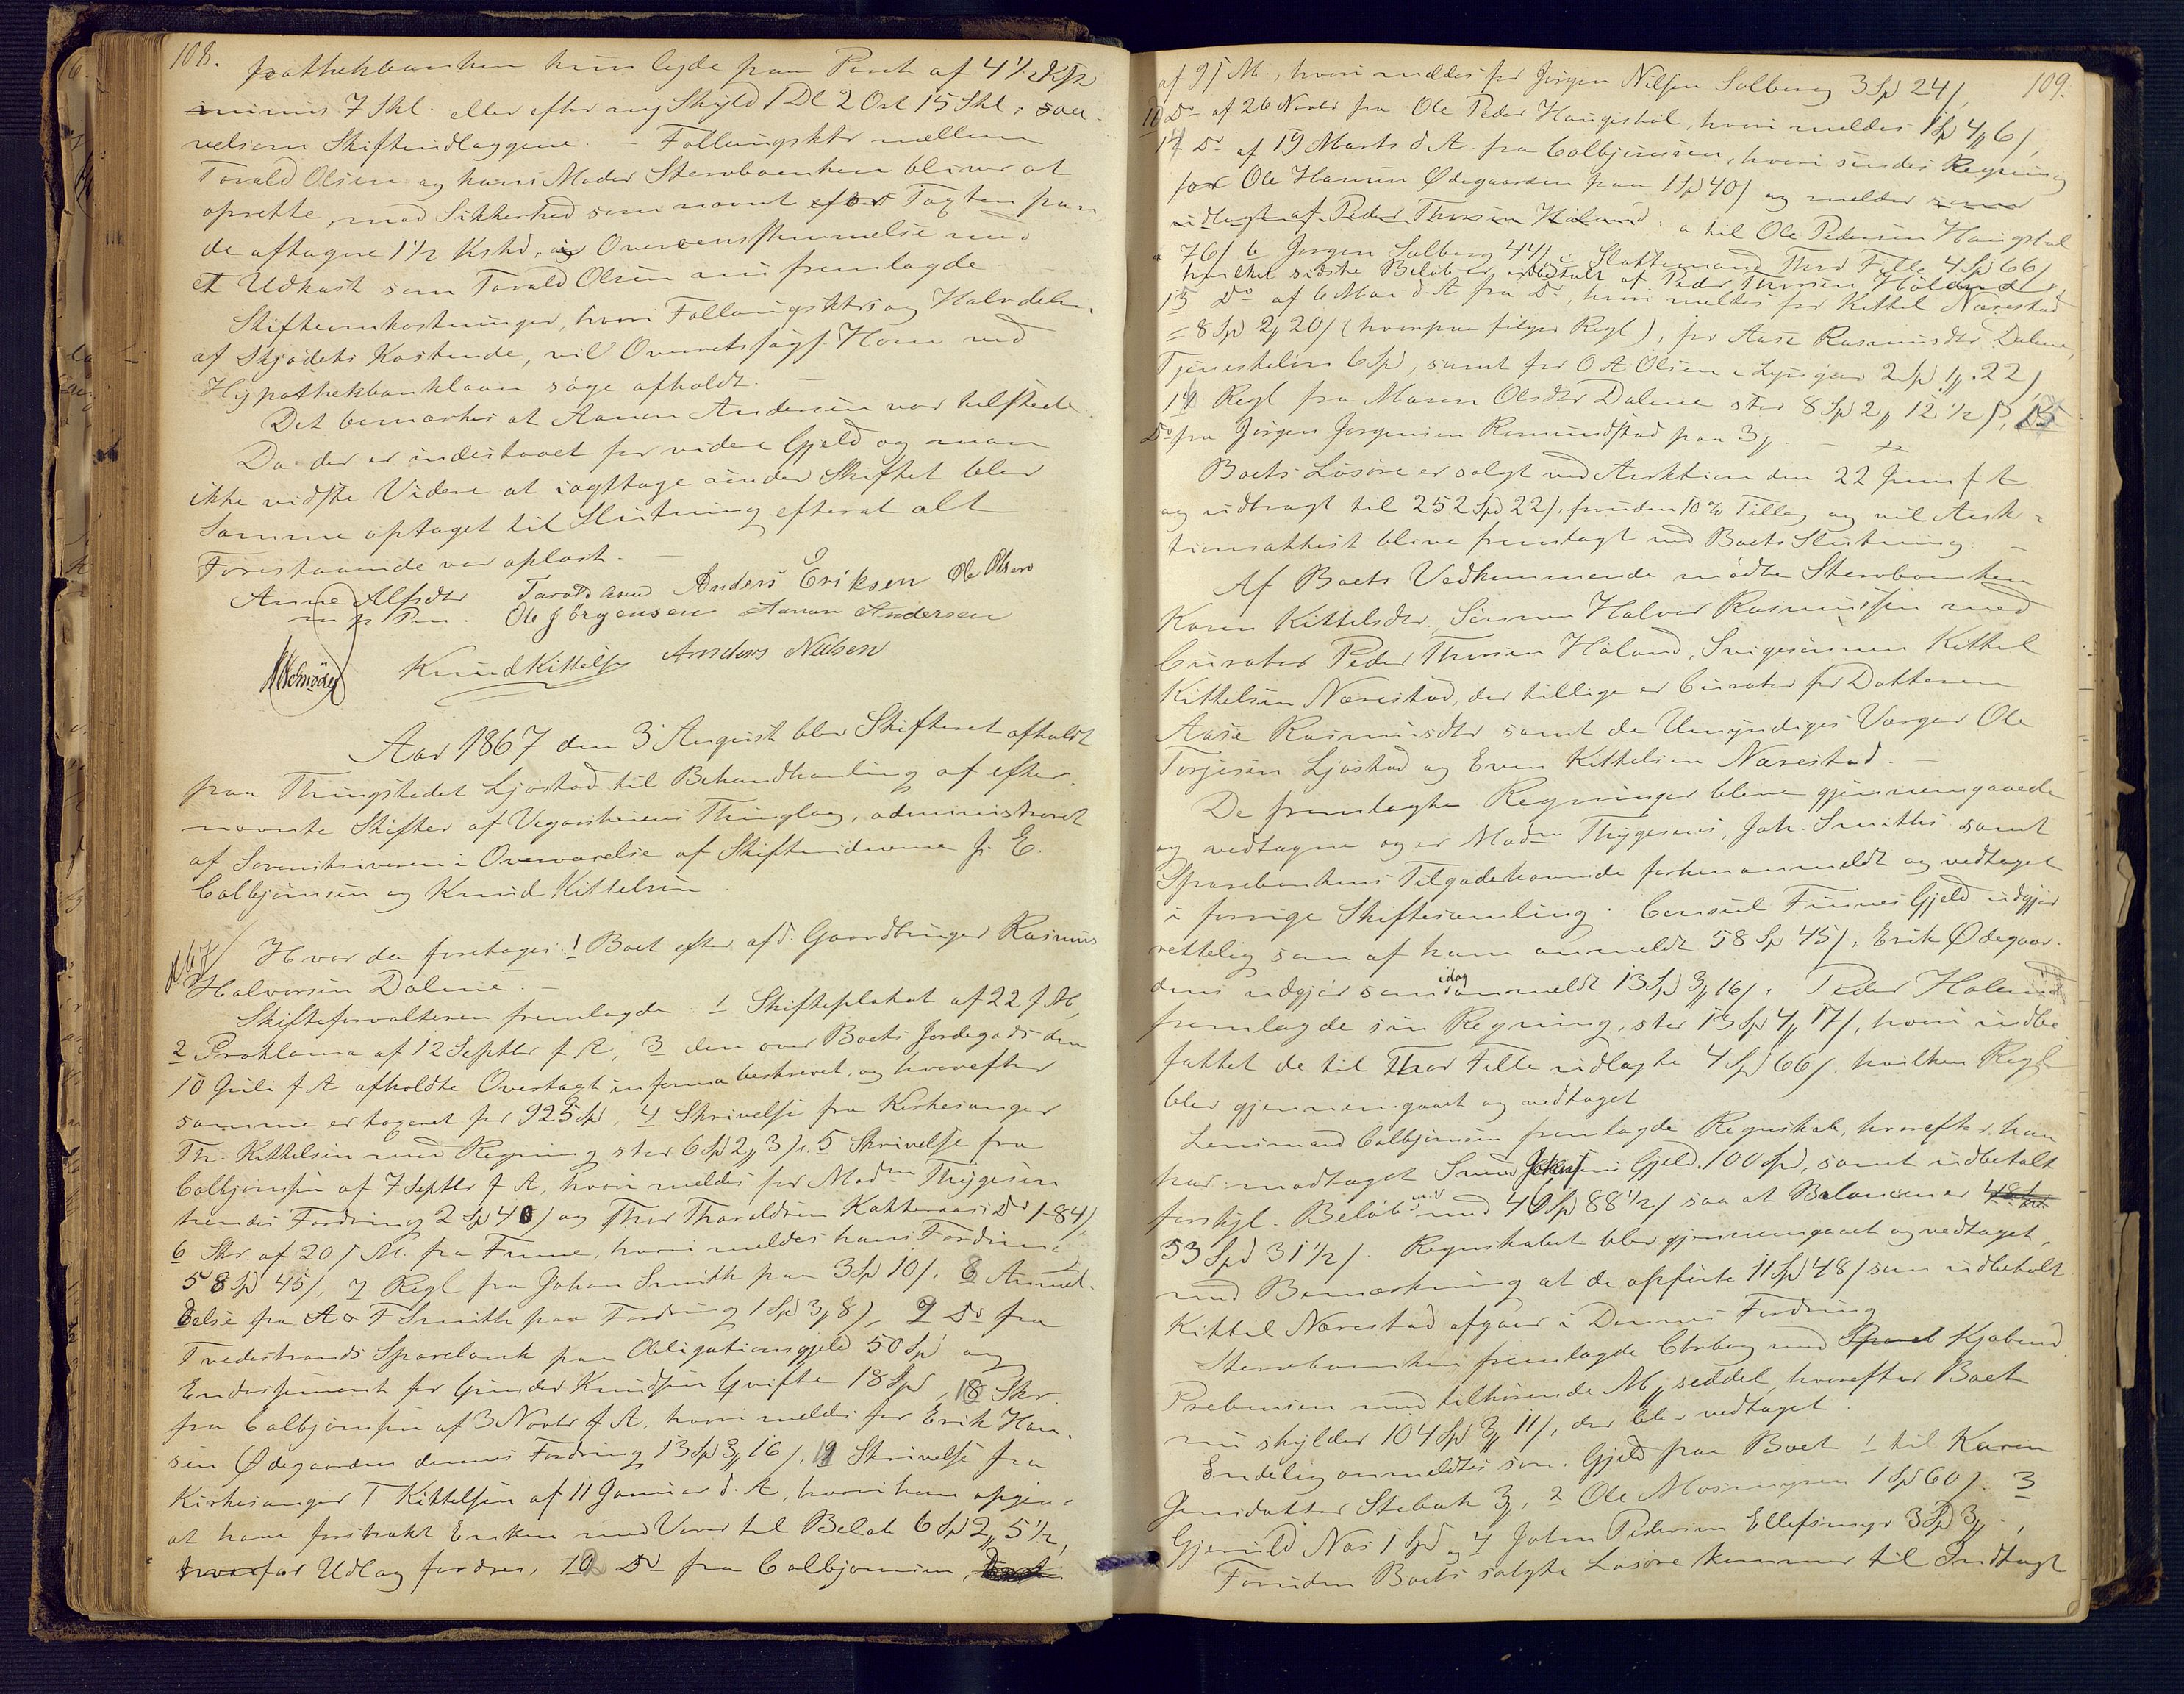 108.
pothekbanken kun lyde paa Part af 4 1/2
minus 7 Skl. eller efter ny Skyld 1 Dl 2 Ort 15 Skl;
velsom Skifteudlæggene. – Føllaugsktr mellem
Torald Olsen og hans Moder Stervboenken bliver at
oprette, mod Sikkerhed som nævnt efter Taxten paa
de aftagne 1 1/2 Kshd, i Overeensstemmelse med
et Udkast som Torald Olsen nu fremlagde.
Skifteomkostninger, hvori Føllaugsktrs og Halvdelen
af Skjødets Kostende, vil Overretssagf. Horn ved
Hypothekbanklaan søge afholdt. –
Det bemærkes at Aanon Andersen var tilstede.
Da der er indestaaet for videre Gjeld og man
ikke vidste Videre at iagttage under Skiftet blev
Samme optaget til Slutning efterat alt
Forestaaende var oplæst. –
Anne Alfsdtr Torald Olsen Anders Eriksen Ole Olsen
m p Pen. Ole Jörgensen Aanon Andersen
Knud Kittelsen Anders Nilsen
Aar 1867 den 3 August blev Skifteret afholdt
paa Thingstedet Ljøstad til Behandhanling af efter
nævnte Skifter af Vegaarsheiens Thinglag, administreret
af Sorenskriveren i Overværelse af Skiftevidnerne J. E.
Colbjørnsen og Knud Kittelsen.
Hvor da foretoges: 1 Boet efter afd. Gaardbruger Rasmus
Halvorsen Dalene. –
Skifteforvalteren fremlagde: 1 Skifteplakat af 22 f. M,
2 Proklama af 12 Septbr f A, 3 den over Boets Jordegods den
10 Juli f A afholdte Overtaxt in forma beskrevet, og hvorefter
samme er taxeret for 925 Spd, 4 Skrivelse fra Kirkesanger
Th. Kittelsen med Regning stor 6 Spd 2, 3/. 5 Skrivelse fra
Colbjørnsen af 7 Septbr f A, hvori meldes for Madm Thygesen
hendes Fordring 2 Spd 40/ og Thor Tharaldsen Katteraas Do 1-84/,
6 Skr. af 20 f M. fra Finne, hvori meldes hans Fordring
58 Spd 45/, 7 Regl fra Johan Smith paa 3 Spd 10/. 8 Anmel-
delse fra A & F Smith paa Fordring 1 Spd 3, 8/, 9 Do fra
Tvedestrands Sparebank paa Obligationsgjeld 50 Spd og
Endossement for Gunder Knudsen Goifte 18 Spd, 10 Skr
fra Colbjørnsen af 3 Novbr f A. hvori meldes for Erik Han-
sen Ødegaarden dennes Fordring 13 Spd 3, 16/. 11 Skrivelse fra
Kirkesanger T Kittelsen af 11 Januar d. A, hvori han opgiv.
at have forstrakt Enken med Varer til Beløb 6 Spd 2, 5 1/2,
hvorfor Udlæg fordres, 12 Do fra Colbjørnsen,
109.
af 9 f M., hvori meldes for Jørgen Nilsen Solberg 3 Spd 24/,
Do af 26 Novbr fra Ole Peder Haugestøl, hvori meldes 1 Spd 4, 6/,
Do af 19 Marts d A. fra Colbjørnsen, hvori sendes Regning
for Ole Hansen Ødegaarden paa 1 Spd 40/ og melder som
udlagt af Peder Thorsen Høland: a til Ole Pedersen Haugstøl
76/ b Jørgen Solberg 44/ Slottsmand Thor Felle 4 Spd 66/
hvilket sidste Beløb er udbetalt af Peder Thorsen Höland
15 Do af 6 Mai d A fra Do, hvori meldes for Kittel Nærestad
= 8 Spd 2, 20/ (hvorpaa følger Regl), for Aase Rasmusdtr Dalene,
Tjenesteløn 6 Spd, samt for O A Olsen i Lyngør 2 Spd 1, 22/,
Regl fra Maren Olsdtr Dalene stor 8 Spd 2, 12 1/2/,
Do fra Jørgen Jørgensen Romundstad paa 3,. –
Boets Løsøre er solgt ved Auktion den 22 Juni f A
og udbragt til 252 Spd 22/. foruden 10 % Tillæg og vil Auk-
tionsattest blive fremlagt ved Boets Slutning. –
Af Boets Vedkommende mødte Stervboenken
Karen Kittelsdtr, Sønnen Halvor Rasmussen med
Curator Peder Thorsen Høland, Svigersønnen Kittel
Kittelsen Nærestad, der tillige er Curator for Datteren
Aase Rasmusdtr samt de Umyndiges Værger Ole
Torjesen Ljøstad og Even Kittelsen Nærestad. –
De fremlagte Regninger bleve gjennemgaaede
og vedtagne og er Madm Thygesens, Joh. Smiths samt
Sparebankens Tilgodehavende forhen anmeldt og vedtaget
i forrige Skiftesamling. Consul Finnes Gjeld udgjør
rettelig som af ham anmeldt 58 Sp 45/. Erik Ødegaar-
dens udgjør som idag anmeldt 13 Spd 3, 16/. Peder Høland
fremlagde sin Regning, stor 13 Spd 4, 17/, hvori indbe
fattet de til Thor Felle udlagte 4 Spd 66/. hvilken Regl
blev gjennemgaaet og vedtaget
Lensmand Colbjørnsen fremlagde Regnskab, hvorefter han
har modtaget Gjeld 100 Spd, samt udbetalt
forskjl. Beløb med 46 Spd 88 1/2/ saa at Balancen er
53 Spd 31 1/2/. Regnskabet blev gjennemgaaet og vedtaget,
med Bemærkning at de opførte 11 Spd 48/ som udbetalt
Kittil Nærestad afgaar i Dennes Fordring
Stervboenken fremlagde Ctrbog med Kjøbmd
Prebensen med tilhørende seddel, hvorefter Boet
nu skylder 104 Spd 3, 11/, der blev vedtaget.
Endelig anmeldtes som Gjeld paa Boet 1 til Karen
Jensdatter Stebak 3, 2 Ole Mosmyren 1 Spd 60/. 3
Gjeruld Næs 1 Spd og 4 John Pedersen Ellefsmyr 3 Spd 3,.
Foruden Boets solgte Løsøre kommer til Indtægt